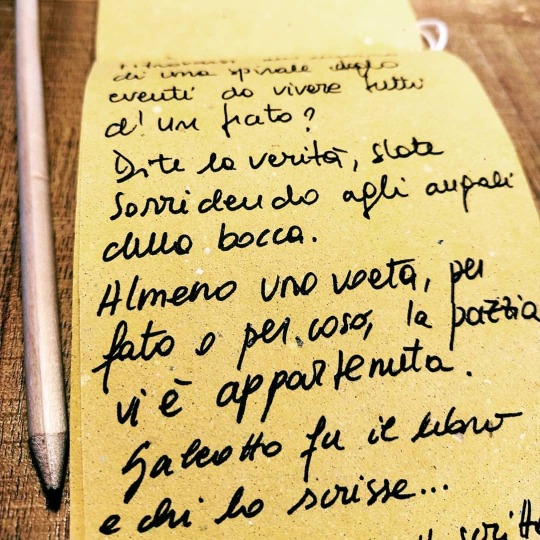 di una spirale degli
eventi da vivere tutti
d'un fiato?
Dite la verità, state
sorridendo agli angoli
della bocca.
Almeno una volta, per
fato o per caso, la pazzia
vi è appartenuta.
Galeotto fu il libro
e chi lo scrisse...